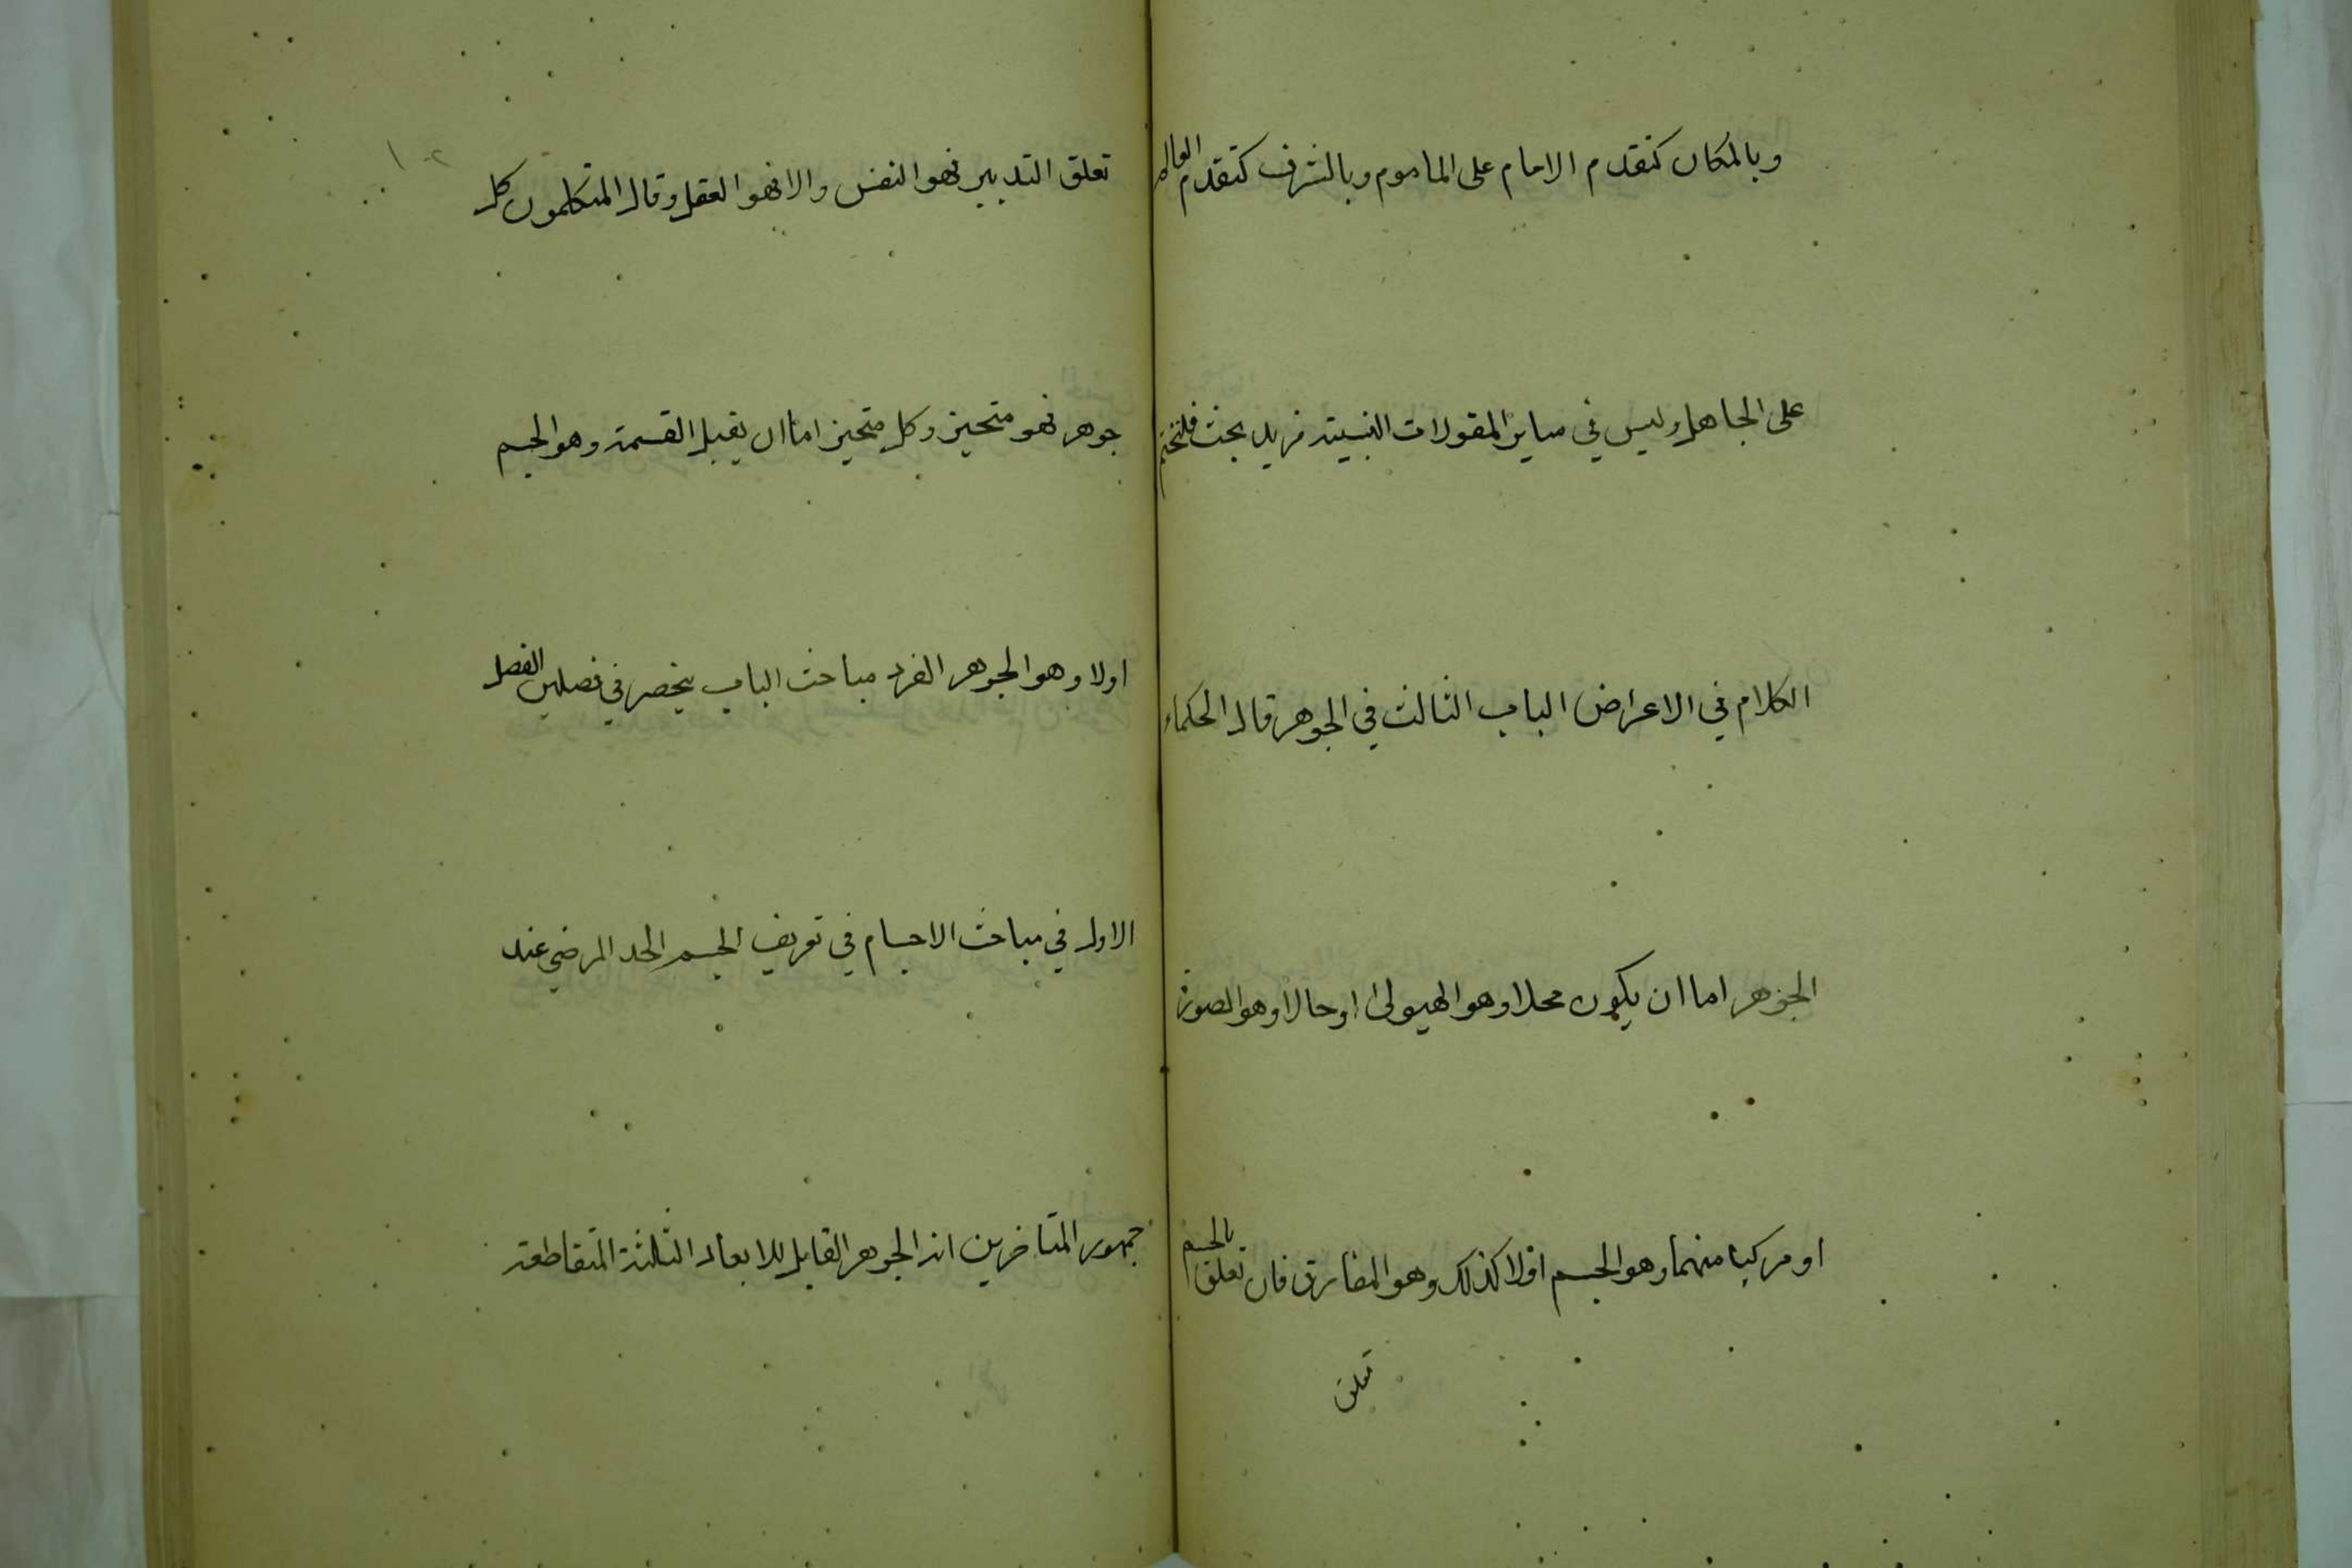 وبالمكان كتقدم الامام على الماموم وبالشرف كتقدم العالم
على الجاهل وليس في ساير المقولات النسبية مزيد بحث فلنختم
الكلام في الاعراض الباب الثالث في الجوهر قال الحكماء
الجوهر اما ان يكون محلا وهو الهيولى او حالا وهو الصورة
او مركبا منهما وهو الجسم اولا كذلك وهو المفارق فان تعلق بالجسم
تعلق
تعلق التدبير فهو النفس والا فهو العقل وقال المتكلمون كل
جوهر فهو متحيز وكل متحيز اما ان يقبل القسمة وهو الجسم
اولا وهو الجوهر الفرد مباحث الباب ينحصر في فصلين الفصل
الاول في مباحث الاجسام في تعريف الجسم الحد المرضي عند
جمهور المتاخرين انه الجوهر القابل للابعاد الثلثة المتقاطعة